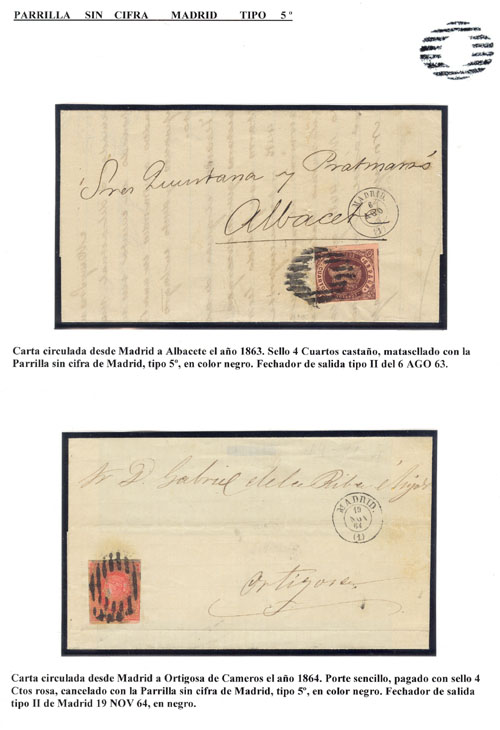 PARRILLA SIN CIFRA MADRID TIPO 5º
Sres Quintana y
Albacete
MADRID
6
AGO
(1)
CUARTOS
Carta circulada desde Madrid a Albacete el año 1863. Sello 4 Cuartos castaño, matasellado con la
Parrilla sin cifra de Madrid, tipo 5º, en color negro. Fechador de salida tipo II del 6 AGO 63.
Sr D. Gabriel de la Riba é hijos
MADRID.
19
NOV
64
(1)
Ortigosa
Carta circulada desde Madrid a Ortigosa de Cameros el año 1864. Porte sencillo, pagado con sello 4
Ctos rosa, cancelado con la Parrilla sin cifra de Madrid, tipo 5º, en color negro. Fechador de salida
tipo II de Madrid 19 NOV 64, en negro.